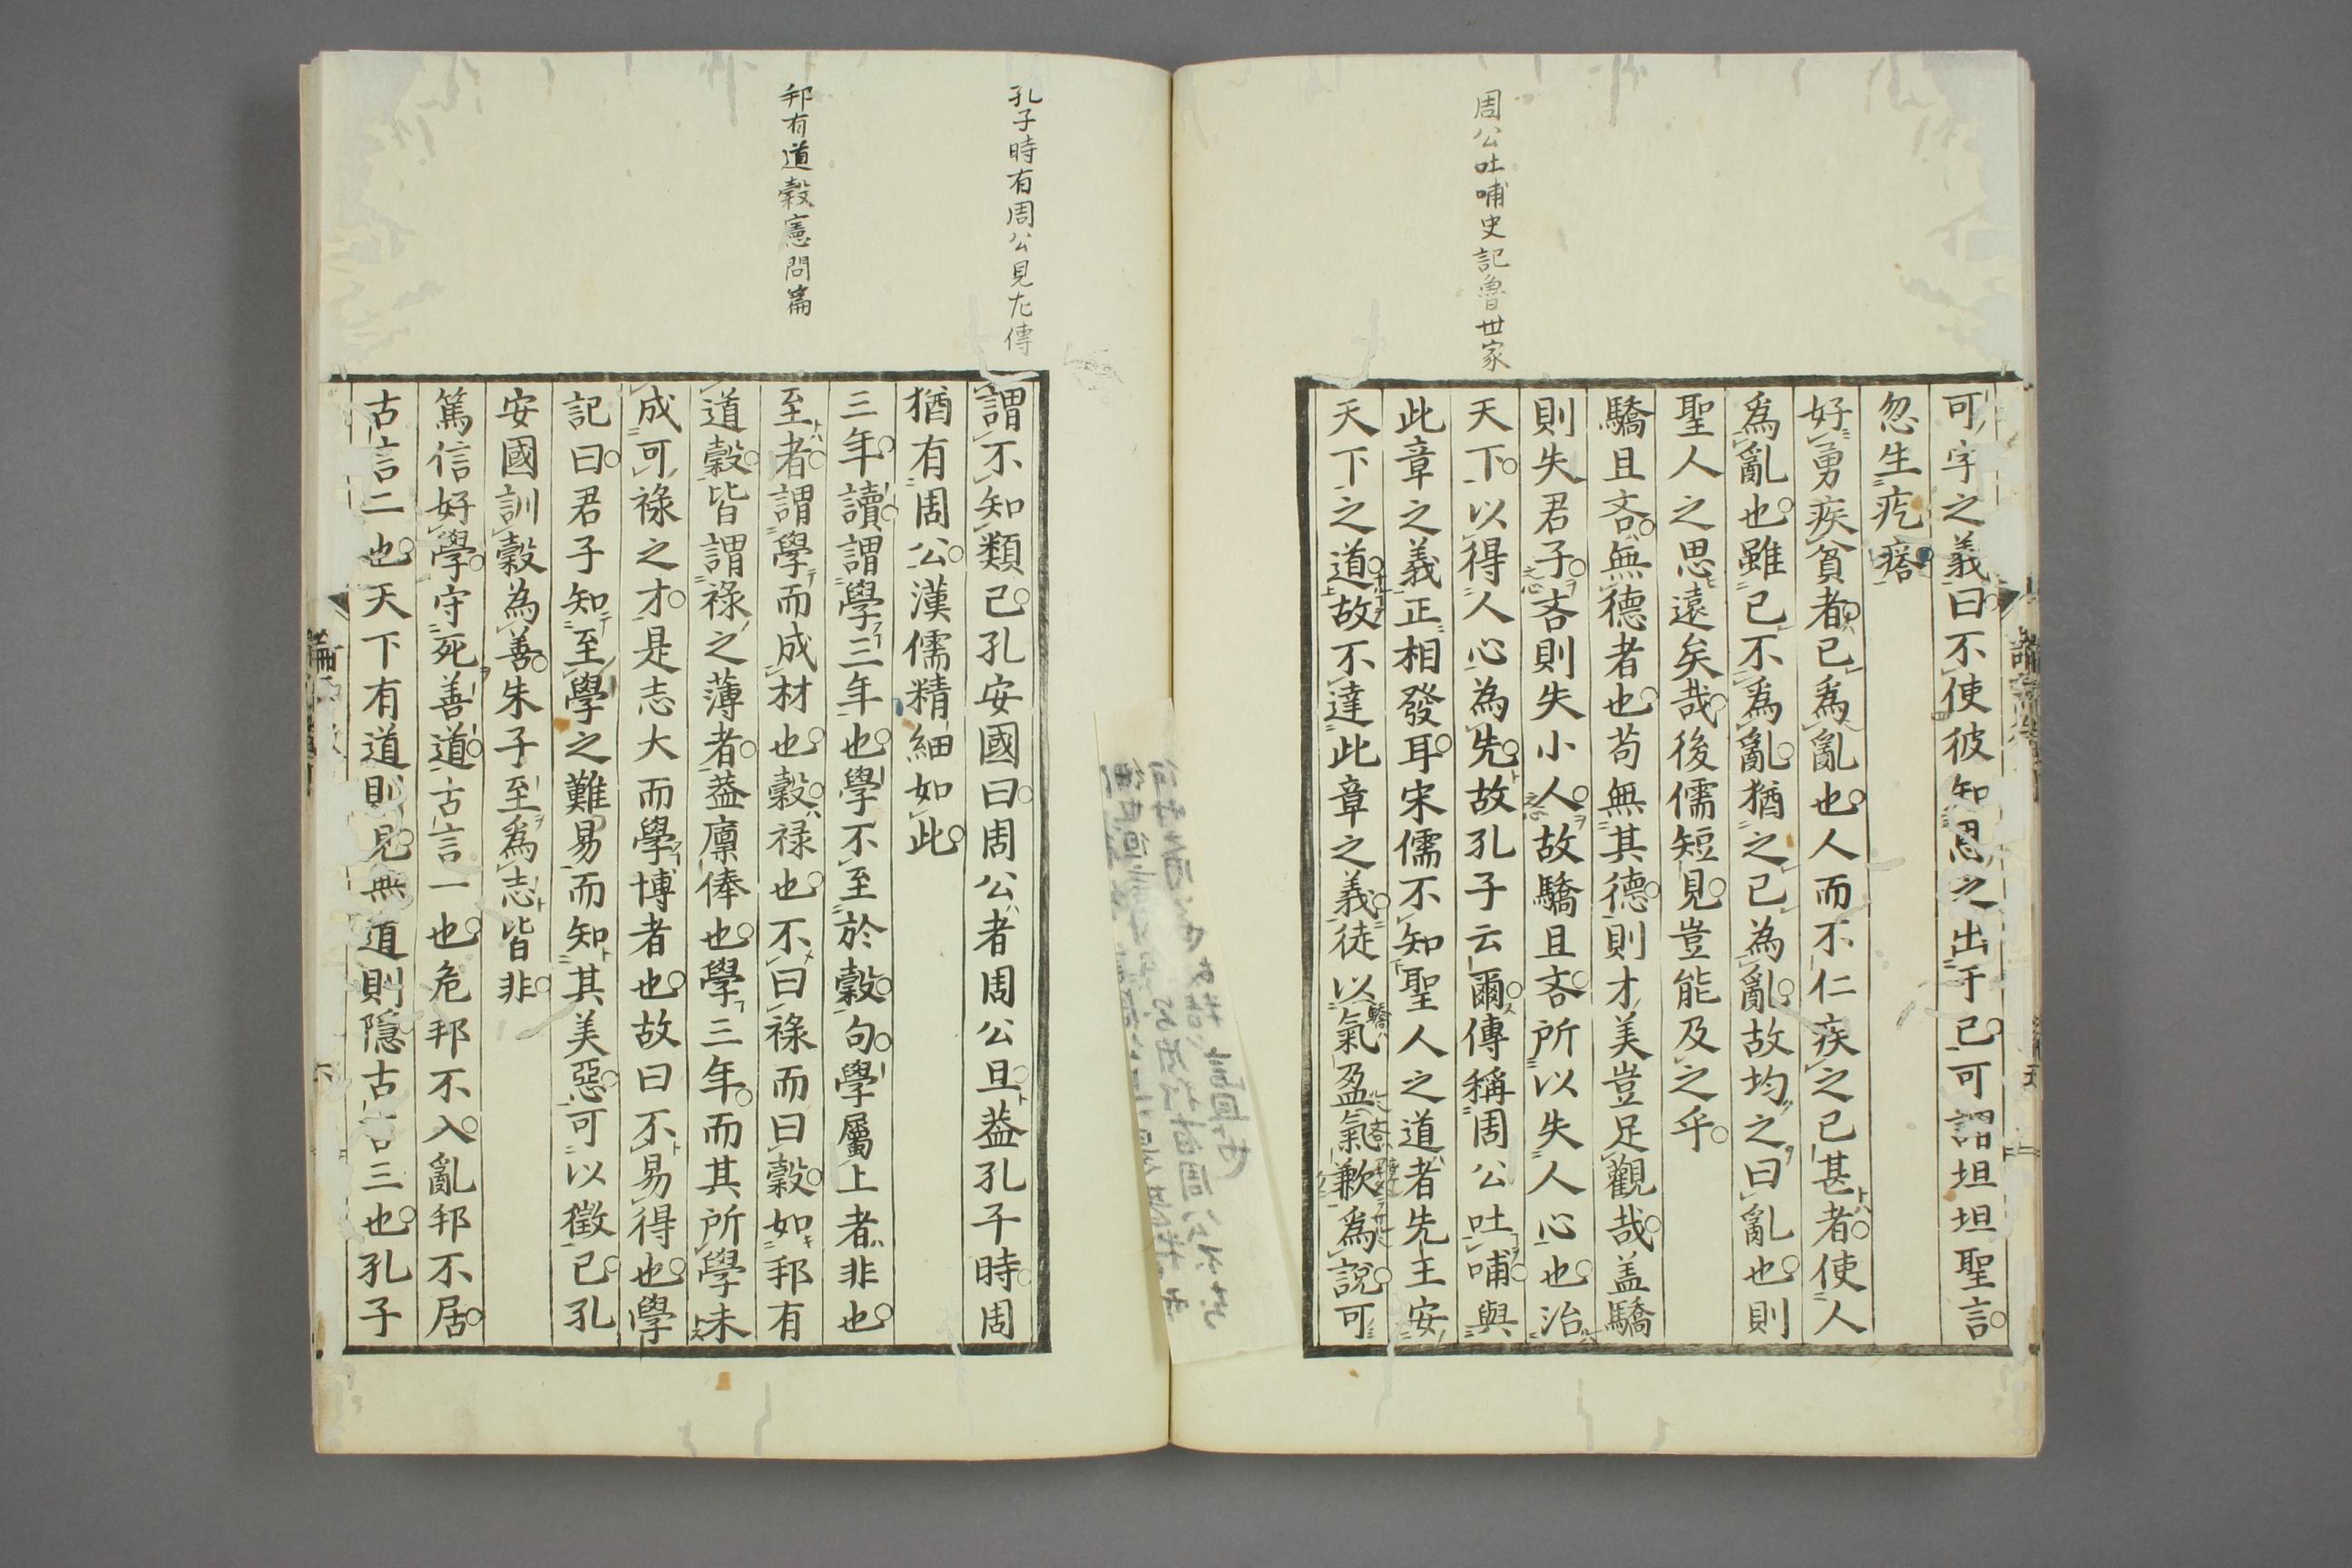 周公吐哺史記魯世家
可字之義曰不使彼知思之出于已可謂坦坦聖言
忽生疙瘩
好勇疾貧者已爲亂也人而不仁疾之已甚者使人
爲亂也雖已不爲亂猶之已為亂故均之曰亂也則
聖人之思遠矣哉後儒短見豈能及之乎
驕且吝無德者也苟無其德則才美豈足觀哉盖驕
則失君子吝則失小人故驕且吝所以失人心也治
天下以得人心為先故孔子云爾傳稱周公吐哺與
此章之義正相發耳宋儒不知聖人之道者先王安
天下之道故不達此章之義徒以氣盈氣歉爲說可
孔子時有周公見左傳
邦有道穀憲問篇
謂不知類已孔安國曰周公者周公旦葢孔子時周
猶有周公漢儒精細如此
三年讀謂學三年也學不至於穀句學屬上者非也
至者謂學而成材也穀祿也不曰祿而曰穀如邦有
道穀皆謂祿之薄者葢廩俸也學三年而其所學未
成可祿之才是志大而學博者也故曰不易得也學
記曰君子知至學之難易而知其美惡可以徵已孔
安國訓穀為善朱子至爲志皆非
篤信好學守死善道古言一也危邦不入亂邦不居
古言二也天下有道則見無道則隱古言三也孔子